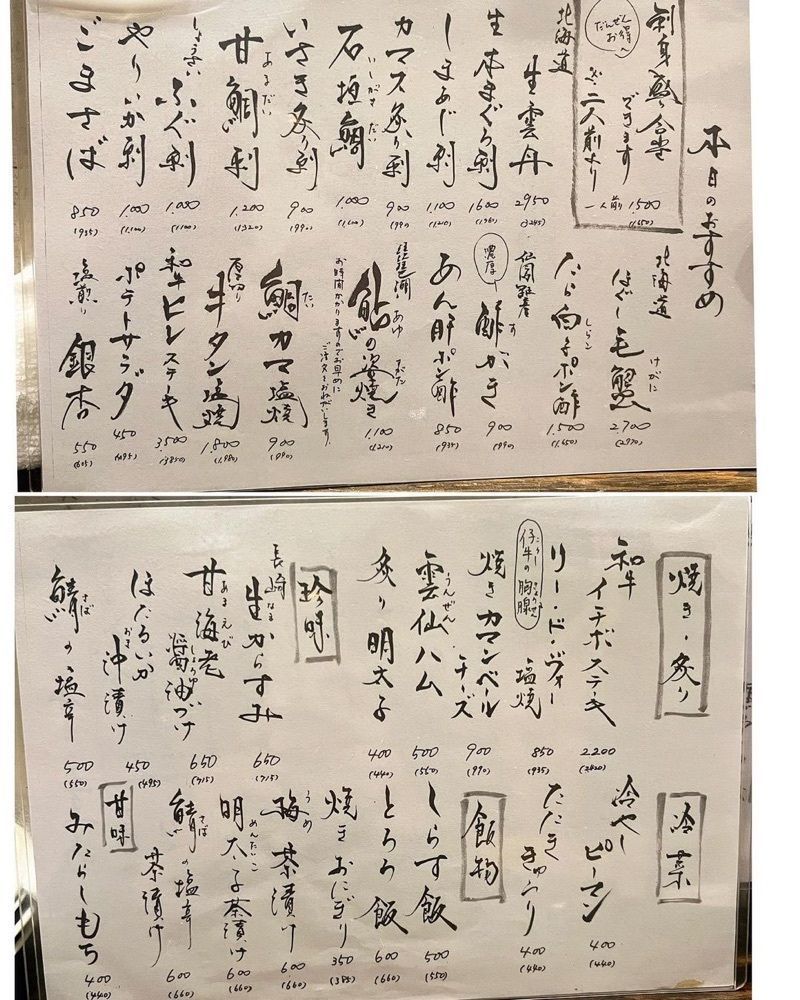 本日のおすすめ
刺身盛り合せ
だんぜんお得
できます
二人前より
一人前 1,500
(1,650)
北海道
生雲丹
2950
(3245)
生本まぐろ刺
1600
(1,760)
しまあじ刺
1,100
(1,210)
カマス炙り刺
900
(990)
いしがきだい
石垣鯛
1,000
(1,100)
いさき炙り刺
900
(990)
あまだい
甘鯛刺
1,200
(1,320)
しょうさい
ふぐ刺
1,000
(1,100)
やりいか刺
1,000
(1,100)
ごまさば
850
(935)
北海道
けがに
ほぐし毛蟹
2,700
(2,970)
しらこ
たら白子ポン酢
1,500
(1,650)
濃厚
す
酢がき
900
(990)
あん肝ポン酢
850
(935)
琵琶湖
あゆ すがた
鮎の姿焼き
お時間かかりますのでお早めに
ご注文をおねがいします。
1,100
(1,210)
たい
鯛カマ塩焼
900
(990)
厚切り
牛タン塩焼
1,800
(1,980)
和牛ヒレステーキ
3,500
(3,850)
ポテトサラダ
450
(495)
塩煎り
銀杏
550
(605)
焼き・炙り
和牛
イチボステーキ
2,200
(2420)
リー・ド・ヴォー
塩焼
仔牛の胸腺
850
(935)
焼きカマンベール
チーズ
900
(990)
うんぜん
雲仙ハム
500
(550)
炙り明太子
400
(440)
珍味
長崎
生からすみ
650
(715)
あまえび
甘海老
しょうゆ
醤油づけ
650
(715)
ほたるいか
おき
沖漬け
450
(495)
さば
鯖の塩辛
500
(550)
冷菜
冷やし
ピーマン
400
(440)
たたき
きゅうり
400
(440)
飯物
しらす飯
500
(550)
とろろ飯
600
(660)
焼きおにぎり
350
(385)
うめ
梅茶漬け
600
(660)
めんたいこ
明太子茶漬け
600
(660)
さば
鯖の塩辛
茶漬け
600
(660)
甘味
みたらしもち
400
(440)